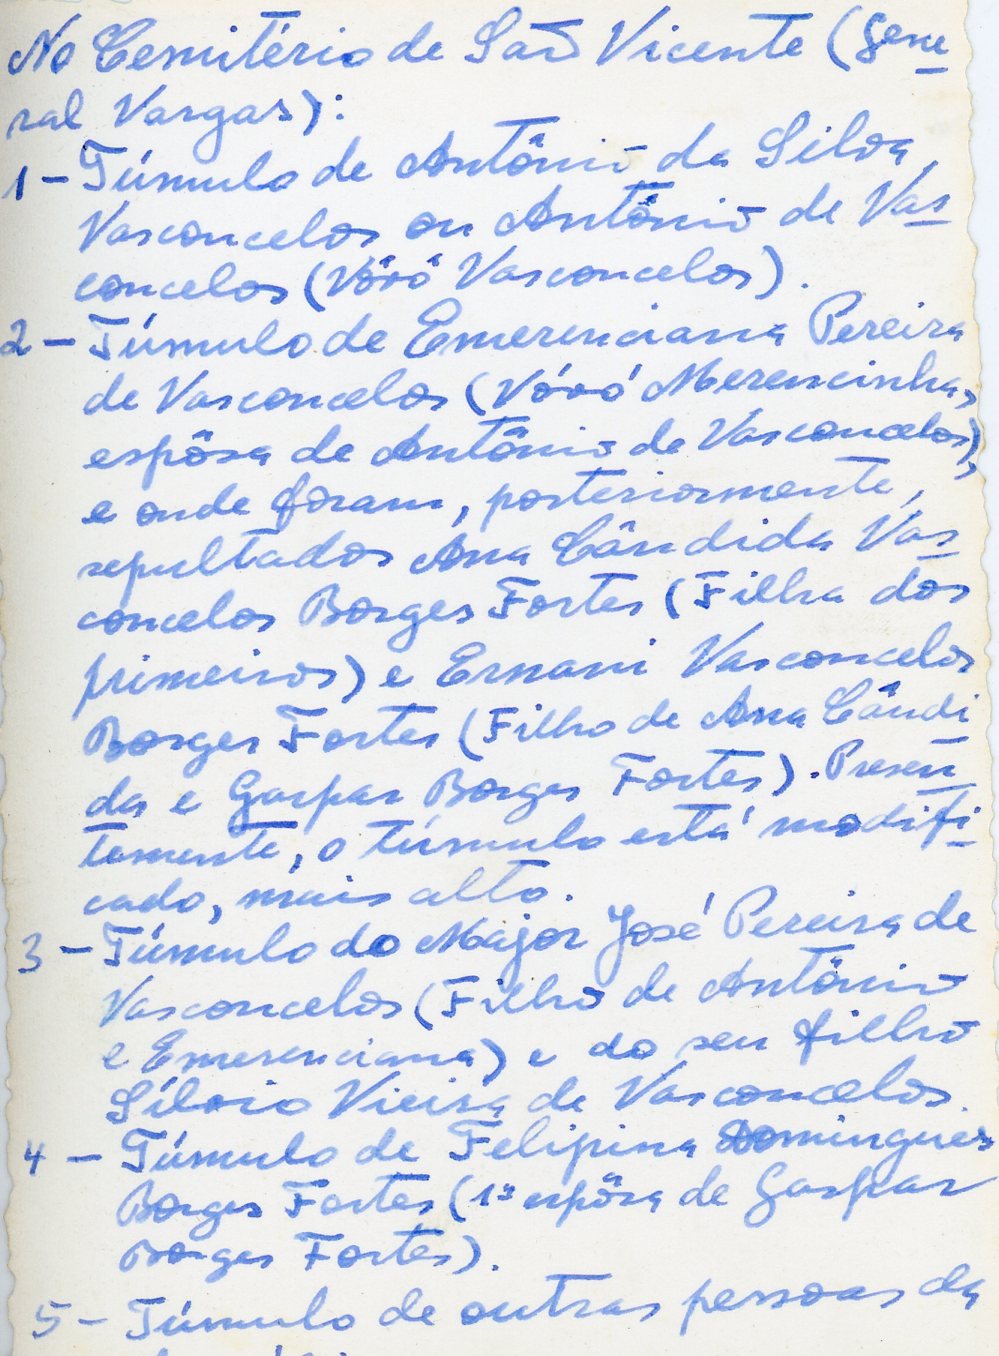 No Cemitério de São Vicente (Gene
ral Vargas):
1 - Túmulo de Antônio da Silva
Vasconcelos ou Antônio de Vas
concelos (Vôvô Vasconcelos).
2 - Túmulo de Emerenciana Pereira
de Vasconcelos (Vóvó Merencinha,
espôsa de Antônio de Vasconcelos),
e onde foram, posteriormente,
sepultados Ana Cândida Vas
concelos Borges Fortes (Filha dos
primeiros) e Ernani Vasconcelos
Borges Fortes (Filho de Ana Cândi
da e Gaspar Borges Fortes). Presen
temente, o túmulo está modifi
cado, mais alto.
3 - Túmulo do Major José Pereira de
Vasconcelos (Filho de Antônio
e Emerenciana) e do seu filho
Sílvio Vieira de Vasconcelos.
4 - Túmulo de Felipina Domingues
Borges Fortes (1ª espôsa de Gaspar
Borges Fortes).
5 - Túmulo de outras pessoas da